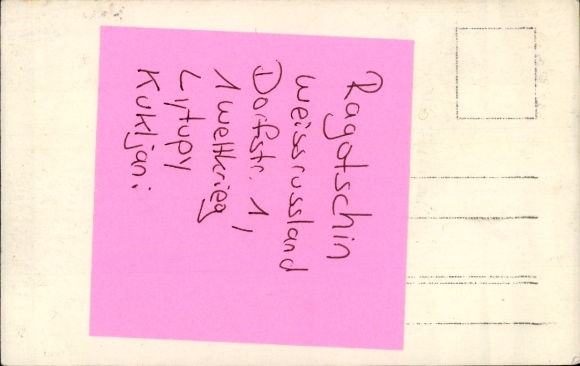 Ragotschin
Weissrussland
Dorfstr. 1,
1 Weltkrieg
Lytupy
Kukljani